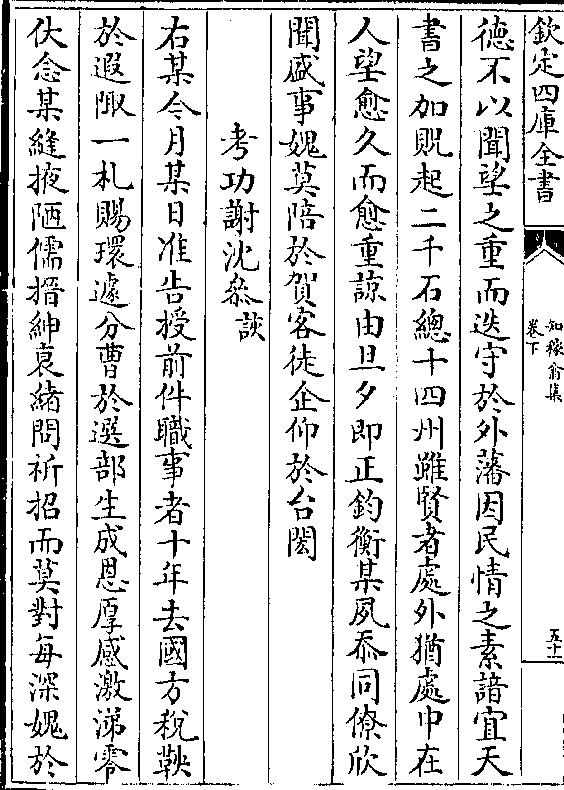 欽定四庫全書
知稼翁集
卷下
五十二
德不以聞望之重而迭守於外藩因民情之素諳宜天
書之加貺起二千石總十四州雖賢者處外猶處中在
人望愈久而愈重諒由旦夕即正鈞衡某夙忝同僚欣
聞盛事媿莫陪於賀客徒企仰於台閎
考功謝沈叅議
右某今月某日准告授前件職事者十年去國方稅鞅
於遐陬一札賜環遽分曹於選部生成恩厚感激涕零
伏念某縫掖陋儒搢紳衰緒問祈招而莫對每深媿於